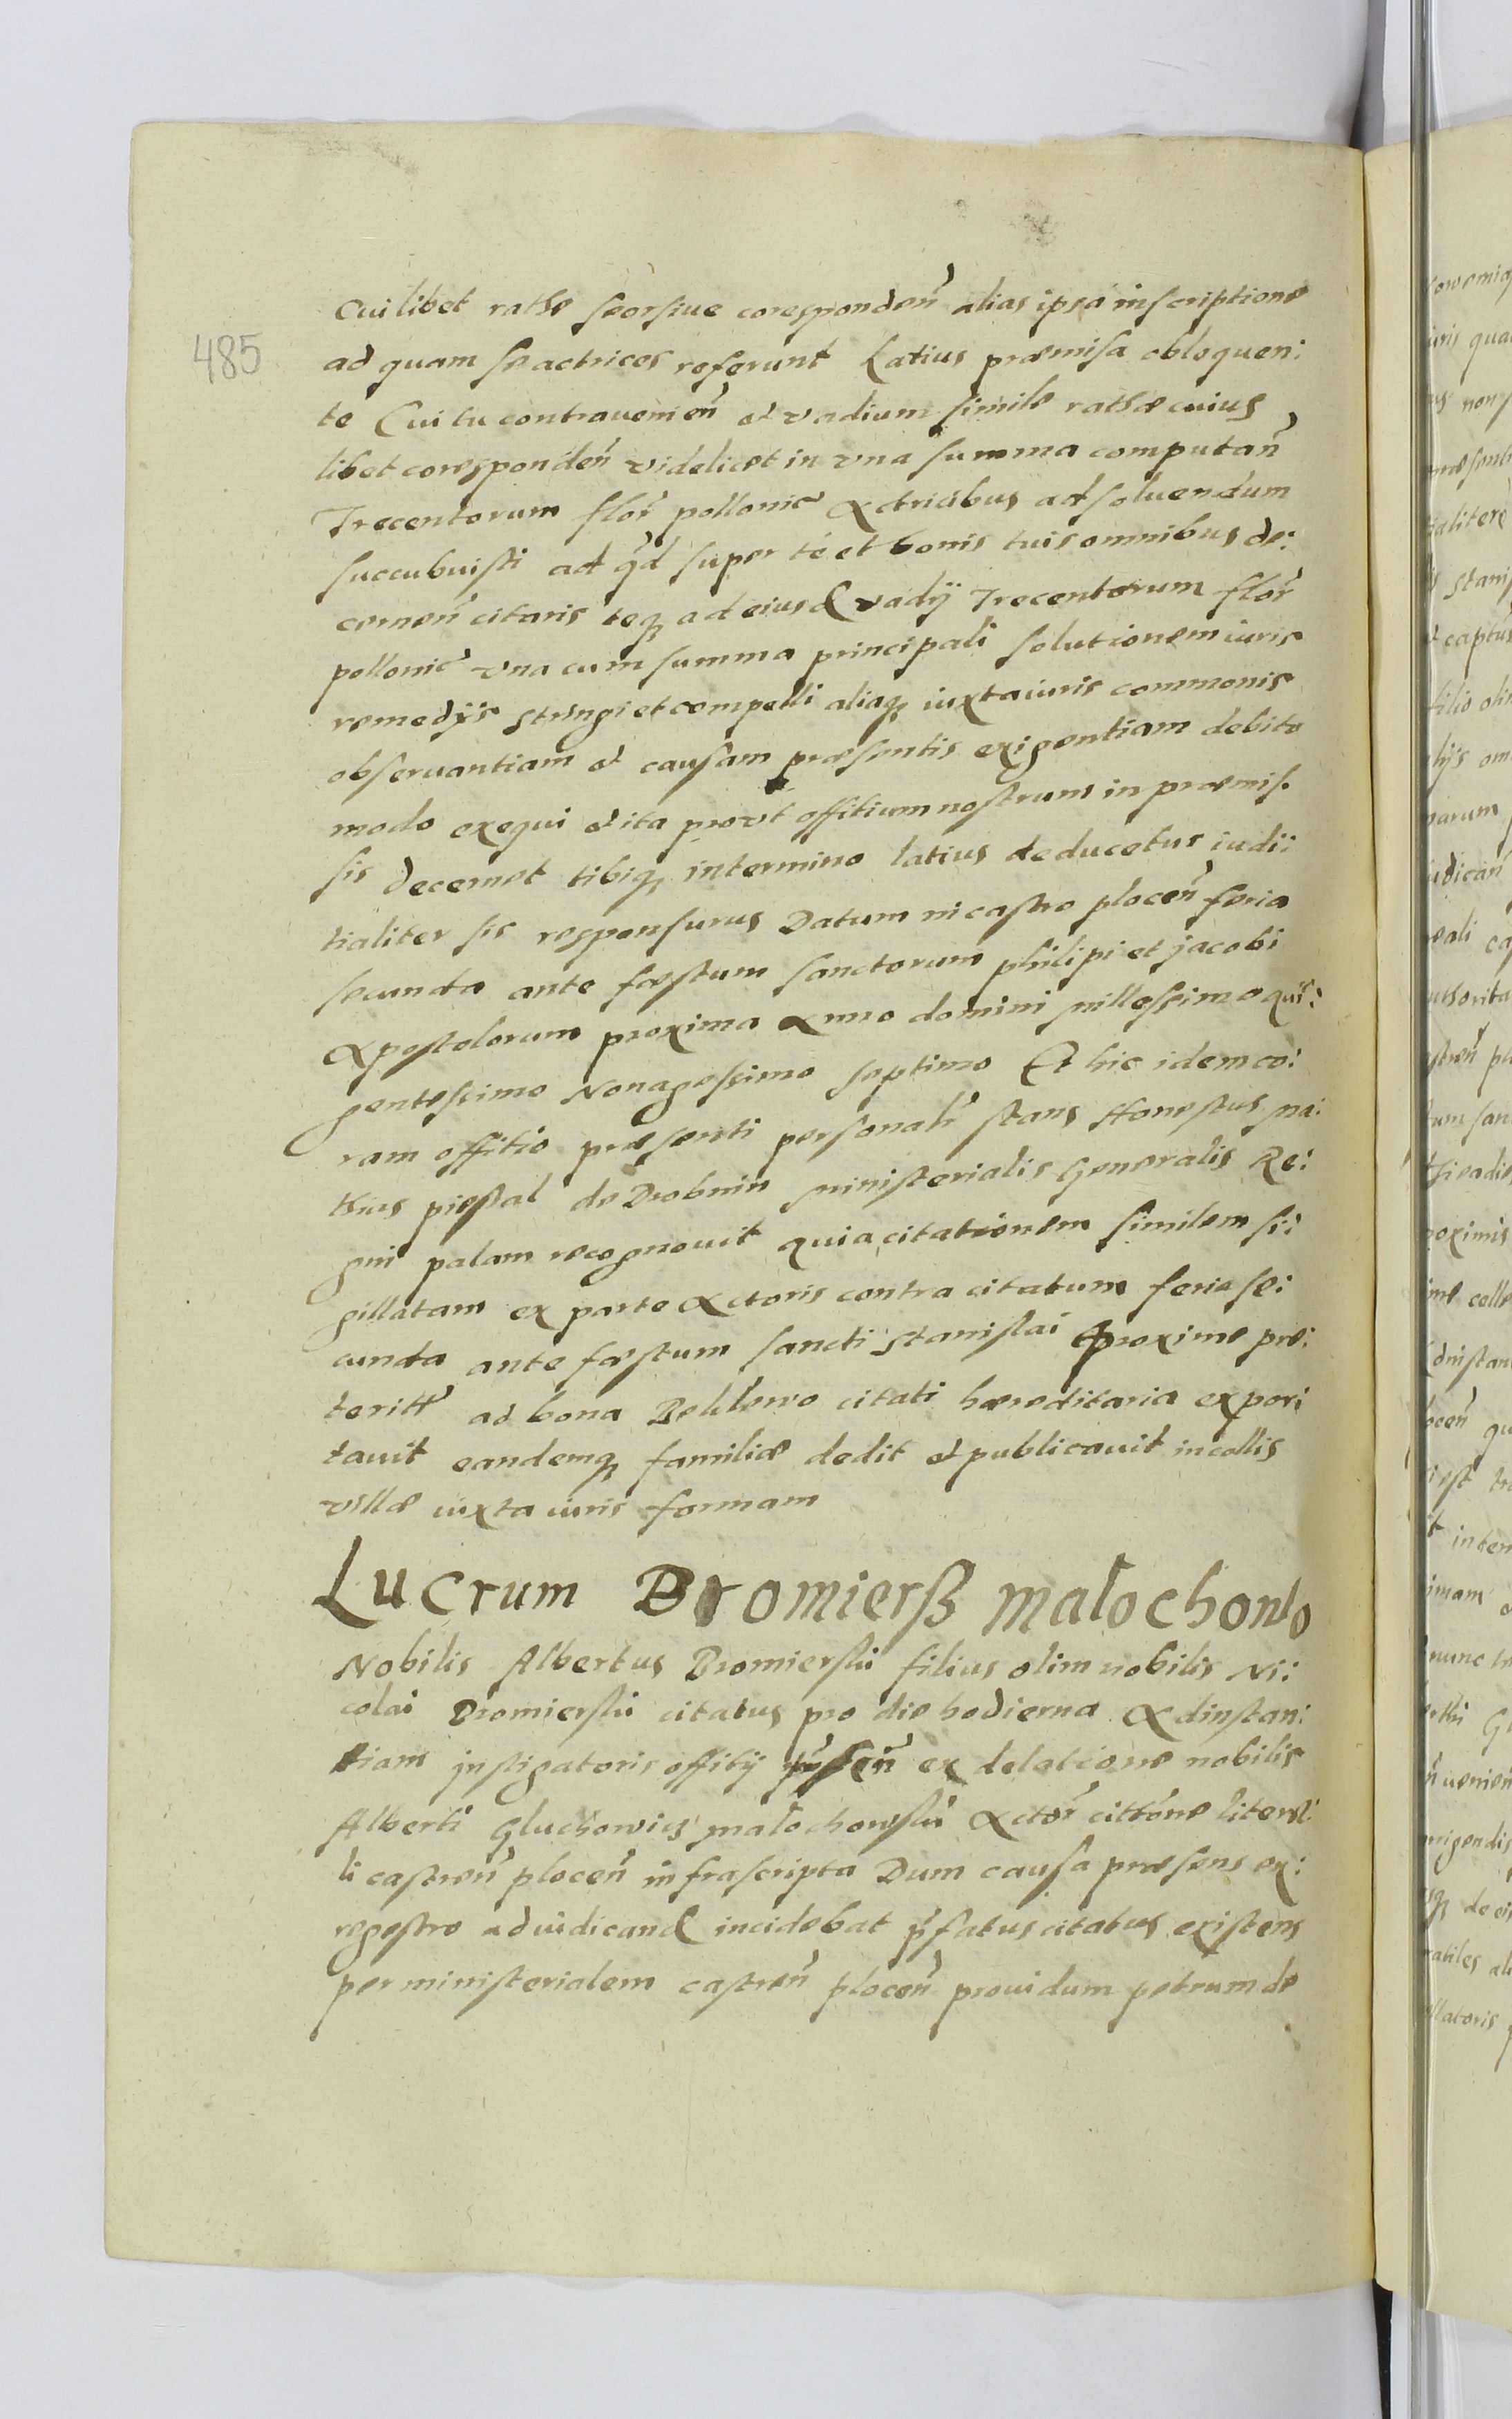 485
Cui libet rathe seorsiue corespondeñ alias ipsa inscriptione
ad quam se actrices referunt Latius præmisa obloquen:
te Cui tu contraueniẽn et vadium simile rathæ cuius
libet corespondeñ videlicet in vna summa computañ
Trecentorum floř pollonic̃ Actricibus ad soluendum
succubuisti ad qd̃ super te et bonis tuis omnibus de:
cerneñ citaris teq; ad eiusd vadij Trecentorum floř
pollonic̃ vna cum summa principali solutionem iuris
remedijs stringi et compelli aliaq; iuxta iuris commonis
obseruantiam et causam præsentis exigentiam debito
modo exequi et ita prout offitium nostrum in præmis.
sis decernet tibiq; in termino latius deducetur iudi:
tialiter sis responsurus Datum in castro ploceñ feria
secunda ante fæstum sanctorum philipi et jacobi
Apostolorum proxima Anno domini millessimo qui:
gentessimo Nonagessimo septimo Et hic idem co:
ram offitio præsenti personalr̃ stans Honestus Ma:
thias piestal de Drobnin ministerialis Generalis Re:
gni palam recognouit quia citationem similem si:
gillatam ex parte Actoris contra citatum feria se:
cunda ante fæstum sancti Stanislai proxime præ:
teritt̃ ad bona citati hæreditaria expor:
tauit eandemq; familiæ dedit et publicauit in collis
villæ iuxta iuris formam
Lucrum Bromiersß małochowo
Nobilis Albertus Bromierski filius olim nobilis Ni:
colai Bromierski citatus pro die hodierna Ad instan:
tiam jnstigatoris offitij ex delatione nobilis
Alberti Gluchowicz małochowski Actoř cittõne litera:
li castreñ ploceñ infrascripta Dum causa præsens ex:
regestro adiudicand incidebat p̃fatus citatus existens
per ministerialem castreñ ploceñ prouidum petrum de